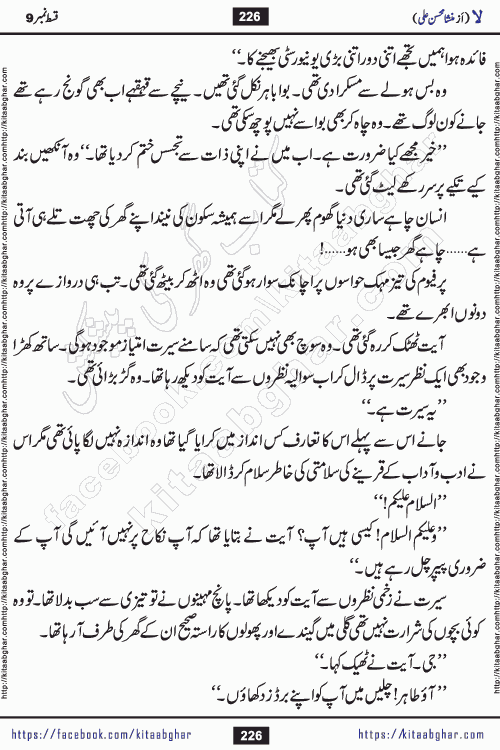 لا (از منشا محسن علی)
226
قسط نمبر 9
فائدہ ہوا ہمیں تجھے اتنی دور اتنی بڑی یونیورسٹی بھیجنے کا۔‘‘
وہ بس ہولے سے مسکرا دی تھی۔ بوا باہر نکل گئی تھیں۔ نیچے سے قہقہے اب بھی گونج رہے تھے
جانے کون لوگ تھے۔ وہ چاہ کر بھی بوا سے نہیں پوچھ سکی تھی۔
’’خیر مجھے کیا ضرورت ہے۔ اب میں نے اپنی ذات سے تجسس ختم کر دیا تھا۔‘‘ وہ آنکھیں بند
کیے تکیے پر سر رکھے لیٹ گئی تھی۔
انسان چاہے ساری دنیا گھوم پھر لے مگر اسے ہمیشہ سکون کی نیند اپنے گھر کی چھت تلے ہی آتی
ہے...... چاہے گھر جیسا بھی ہو......!
پرفیوم کی تیز مہک حواسوں پر اچانک سوار ہو گئی تھی وہ اٹھ کر بیٹھ گئی تھی۔ تب ہی دروازے پر وہ
دونوں ابھرے تھے۔
آیت ٹھٹک کر رہ گئی تھی۔ وہ سوچ بھی نہیں سکتی تھی کہ سامنے سیرت امتیاز موجود ہو گی۔ ساتھ کھڑا
وجود بھی ایک نظر سیرت پر ڈال کر اب سوالیہ نظروں سے آیت کو دیکھ رہا تھا۔ وہ گڑبڑائی تھی۔
’’یہ سیرت ہے۔‘‘
جانے اس سے پہلے اس کا تعارف کس انداز میں کرایا گیا تھا وہ اندازہ نہیں لگا پائی تھی مگر اس
نے ادب و آداب کے قرینے کی سلامتی کی خاطر سلام کر ڈالا تھا۔
’’السلام علیکم!‘‘
’’وعلیکم السلام! کیسی ہیں آپ؟ آیت نے بتایا تھا کہ آپ نکاح پر نہیں آئیں گی آپ کے
ضروری پیپر چل رہے ہیں۔‘‘
سیرت نے زخمی نظروں سے آیت کو دیکھا تھا۔ پانچ مہینوں نے تو تیزی سے سب بدلا تھا۔ تو وہ
کوئی بچوں کی شرارت نہیں تھی گلی میں گیندے اور پھولوں کا راستہ صحیح ان کے گھر کی طرف آ رہا تھا۔
’’جی۔ آیت نے ٹھیک کہا۔‘‘
’’آؤ طاہر! چلیں میں آپ کو اپنے برڈز دکھاؤں۔‘‘
https://facebook.com/kitaabghar
226
http://kitaabghar.com